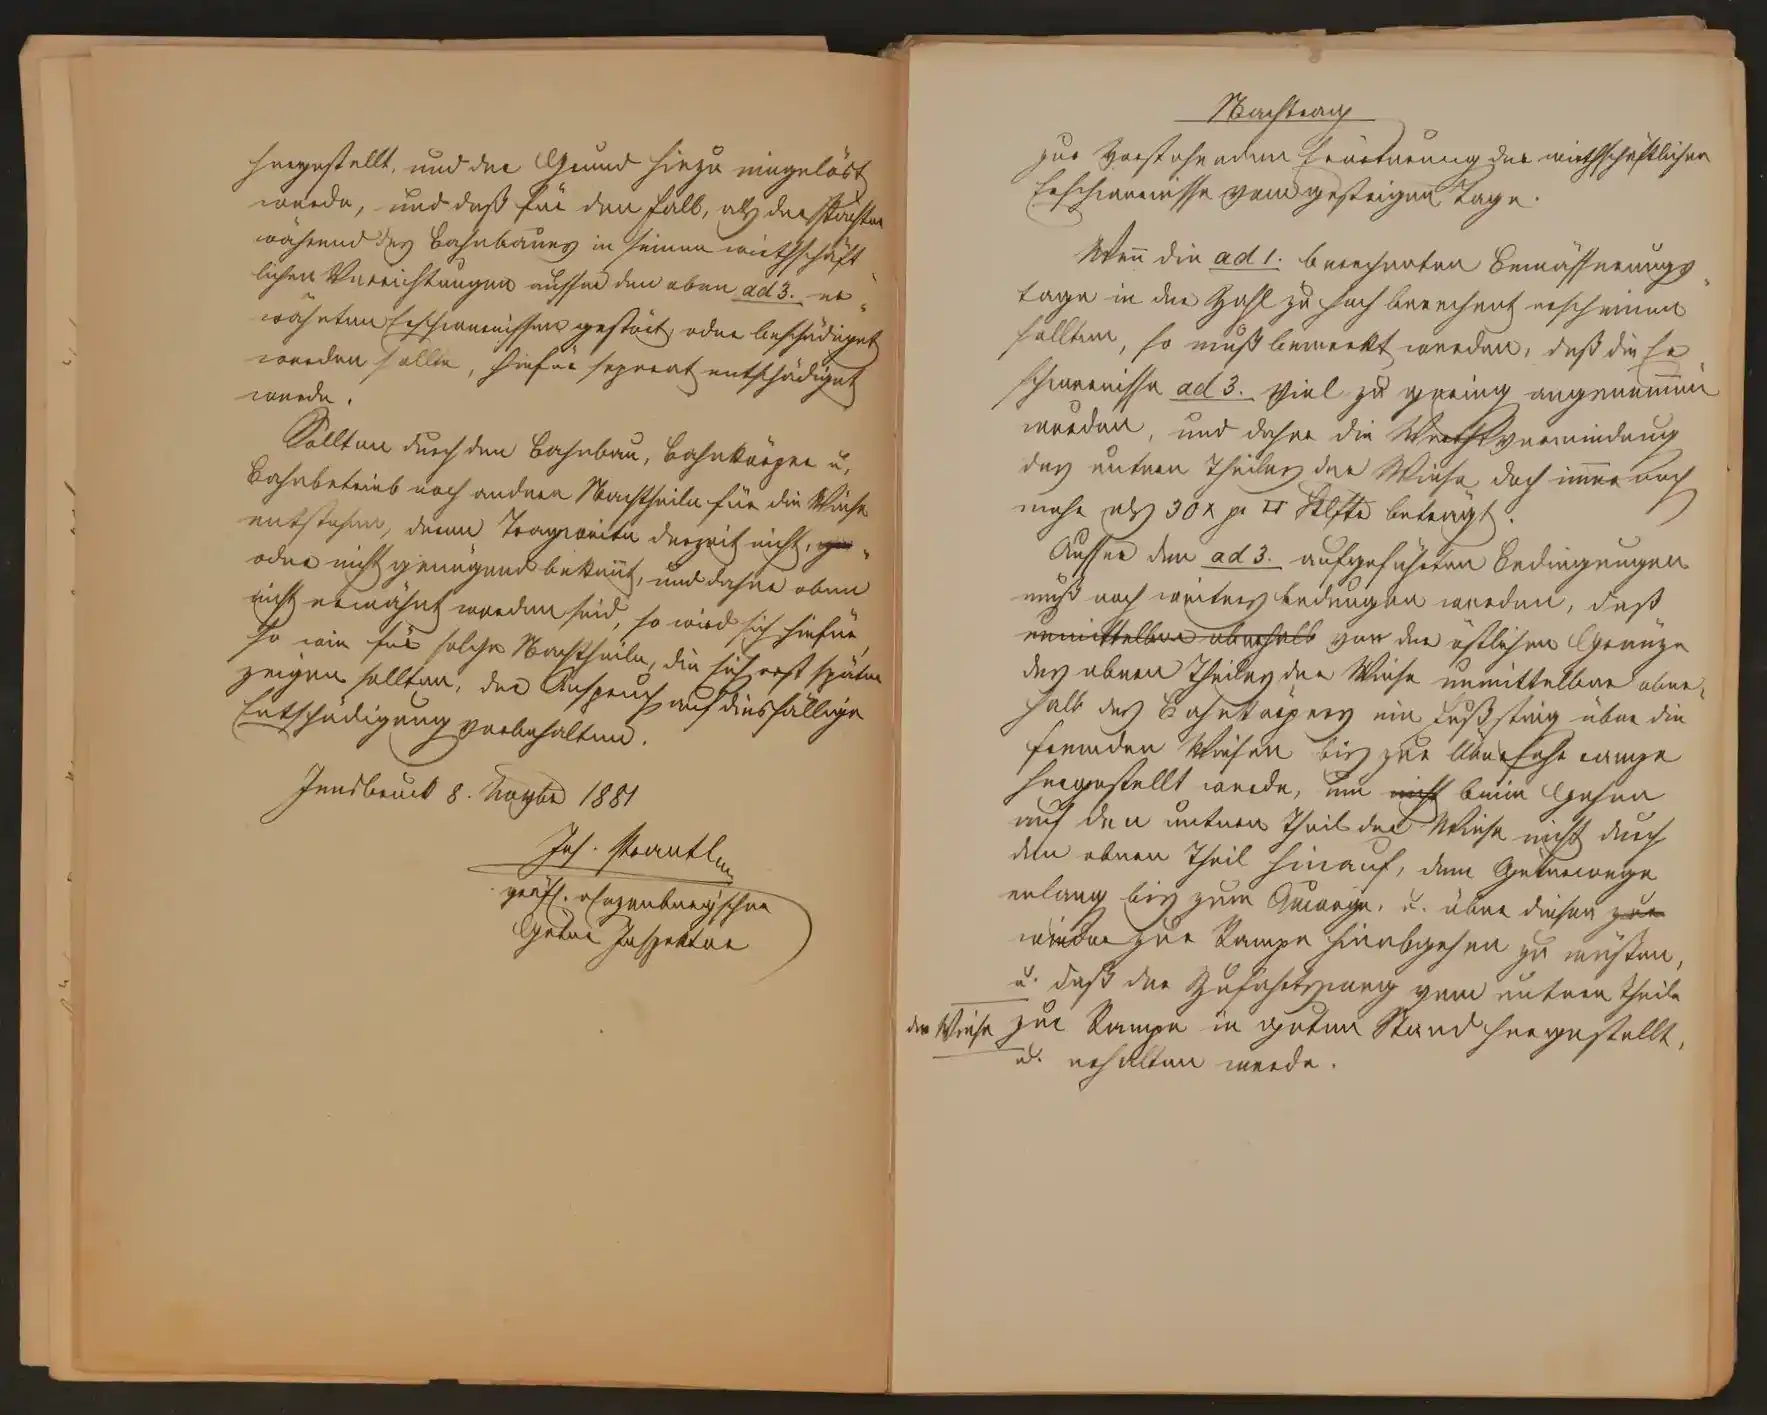 hergestellt, und der Grund hiezu eingelöst
werde, und daß für den Fall, als der Pächter
während des Bahnbaues in seinen wirthschaft
lichen Verrichtungen ausser den oben ad 3. er„
wähnten Erschwernissen gestört, oder beschädiget
werden sollte, hiefür seperat entschädiget
werde.
Sollten durch den Bahnbau, Bahnkörper u.
Bahnbetrieb noch andere Nachtheile für die Wiese
entstehen, deren Tragweite derzeit nicht,
oder nicht genügend bekannt, und daher oben
nicht erwähnt worden sind, so wird sich hiefür,
so wie für solche Nachtheile, die sich erst später
zeigen sollten, der Anspruch auf diesfällige
Entschädigung vorbehalten.
Innsbruck 8. Novbr 1881
Joh. Prantl
gräfl. Enzenberg'scher
Güter Inspektor
Nachtrag
zur vorstehenden Erörterung der wirthschaftlichen
Erschwernisse vom gestrigen Tage.
Wenn die ad 1. berechneten Bewässerungs„
tage in der Zahl zu hoch berechnet erscheinen
sollten, so muß bemerkt werden, daß die Er„
schwernisse ad 3. viel zu gering angenommen
wurden, und daher die Werthsverminderung
des untern Theiles der Wiese doch immer noch
mehr als 30 x pr □ Klfter beträgt.
Ausser den ad 3. aufgeführten Bedingungen
muß noch weiters bedungen werden, daß
unmittelbar oberhalb von der östlichen Gränze
des obern Theiles der Wiese unmittelbar ober„
halb des Bahnkörpers ein Fußsteig über die
fremden Wiesen bis zur Überfahrtrampe
hergestellt werde, um nicht beim Gehen
auf den untern Theil der Wiese nicht durch
den obern Theil hinauf, dem Güterwege
entlang bis zum u. über diesen zur
wieder zur Rampe hinabgehen zu müßen,
u. daß der Zufahrtsweg vom untern Theile
der Wiese zur Rampe in guten Stand hergestellt,
u. erhalten werde.